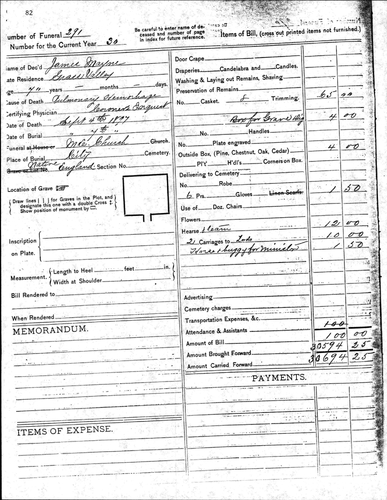 82
Number of Funeral 291
Number for the Current Year 30
Be careful to enter name of deceased and number of page in index for future reference.
Items of Bill, (cross out printed items not furnished.)
Name of Dec'd James
Late Residence Grass Valley
Age 74 years - months - days.
Cause of Death Pulmonary Hemorrhage
Certifying Physician
Date of Death Sept 4th 1907
Date of Burial " 7th "
Funeral at House or M.E. Church Church:
Place of Burial City Cemetery.
Native England Section No.
Location of Grave
Draw lines for Graves in the Plot, and
designate this one with a double Cross
Show position of monument by
Inscription
on Plate.
Measurement. Length to Heel feet in.
Width at Shoulder
Bill Rendered to
When Rendered
MEMORANDUM.
ITEMS OF EXPENSE.
Door Crape
Draperies, Candelabra and Candles.
Washing & Laying out Remains, Shaving
Preservation of Remains
No. Casket. & Trimming. 65 00
Box for Grave 4 00
No. Handles
Plate engraved
Outside Box (Pine, Chestnut, Oak, Cedar) 4 00
PIY. H'd's Corners on Box
Delivering to Cemetery
No. Robe
6 Prs. Gloves Linen Scarfs 1 50
Use of Doz. Chairs
Flowers
Hearse & team 12 00
2 Carriages to 10 00
Horse & buggy for Minister 1 50
Advertising
Cemetery charges
Transportation Expenses, &c.
Attendance & Assistants
Amount of Bill 100 00
Amount Brought Forward 30594 25
Amount Carried Forward 30694 25
PAYMENTS.